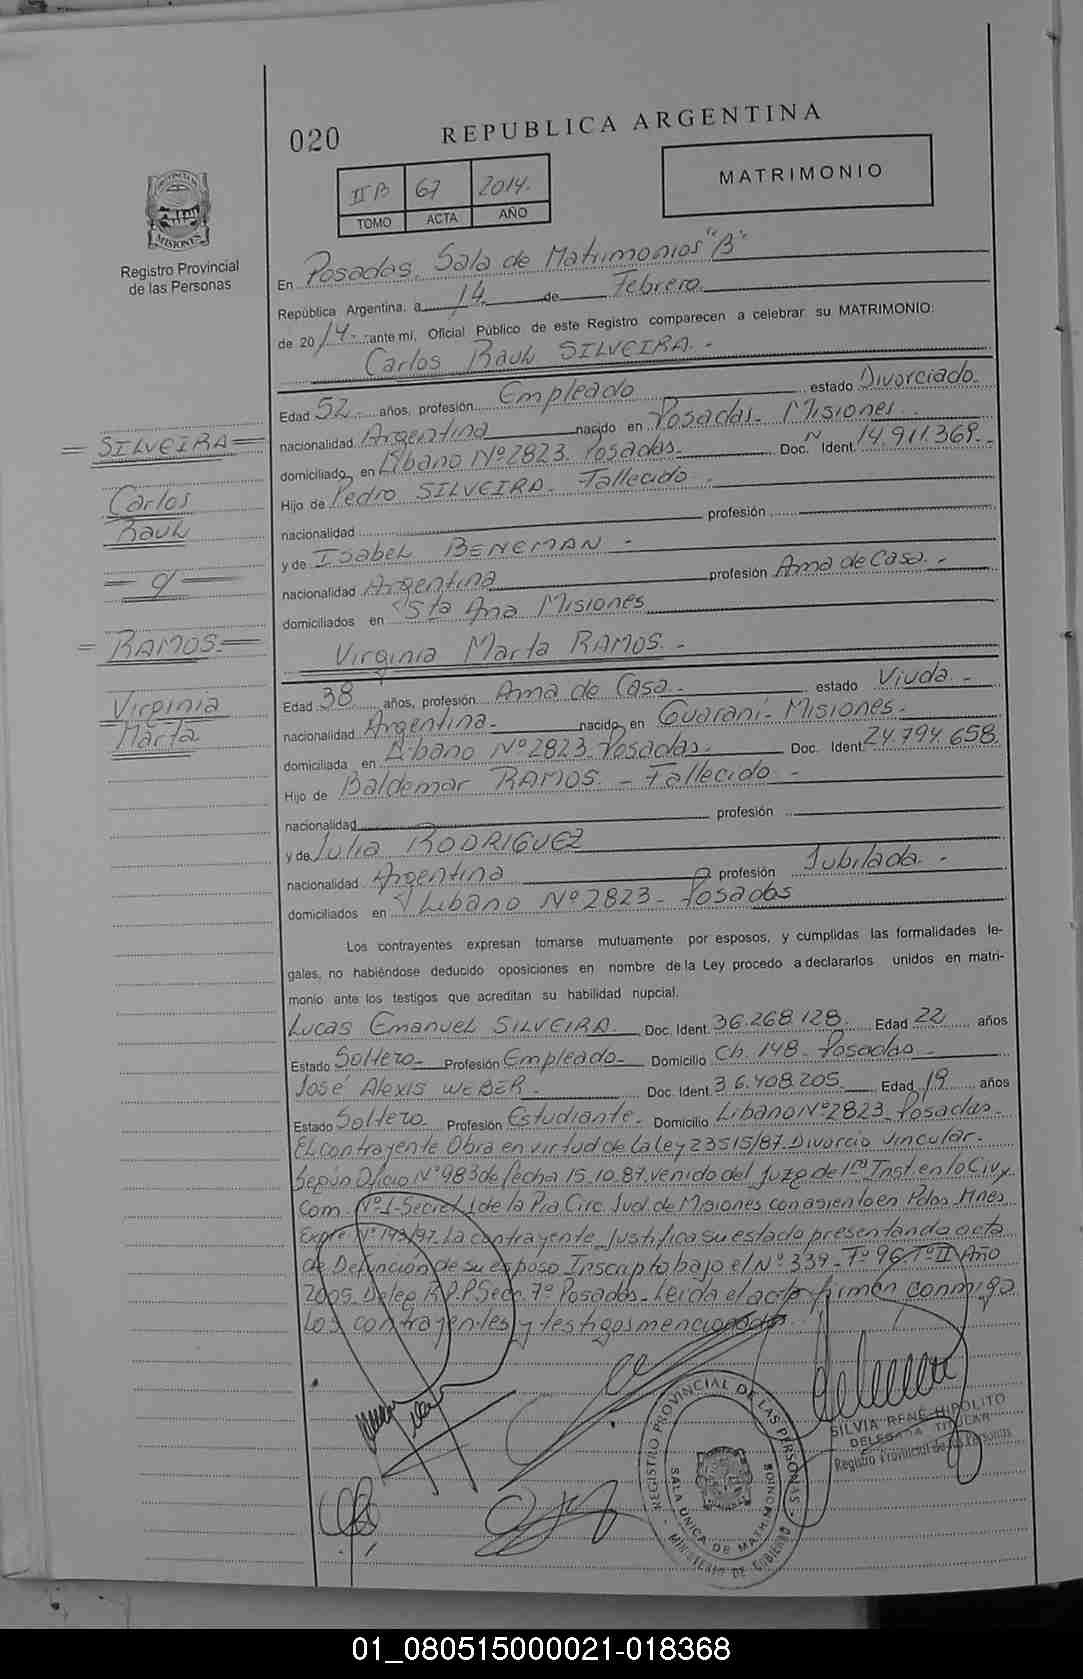 020
REPUBLICA ARGENTINA
MATRIMONIO
II B 67 2014.
TOMO ACTA AÑO
PROVINCIA DE
MISIONES
Registro Provincial
de las Personas
En Posadas, Sala de Matrimonios "B"
República Argentina, a 14 de Febrero
de 2014.- ante mí, Oficial Público de este Registro comparecen a celebrar su MATRIMONIO:
Carlos Raul SILVEIRA.-
Edad 52 años, profesión Empleado estado Divorciado
nacionalidad Argentina nacido en Posadas - Misiones
domiciliado en Libano Nº 2823 Posadas Doc. N Ident. 14.911.369.-
Hijo de Pedro SILVEIRA - Fallecido.
nacionalidad profesión
y de Isabel BENEMAN -
nacionalidad Argentina profesión Ama de Casa.-
domiciliados en Sta Ana Misiones
Virginia Marta RAMOS.-
Edad 38 años, profesión Ama de Casa.- estado Viuda.-
nacionalidad Argentina.- nacido en Guaraní - Misiones.-
domiciliada en Libano Nº 2823 Posadas.- Doc. Ident. 24.794.658
Hijo de Baldemar RAMOS - Fallecido.-
nacionalidad profesión
y de Julia RODRIGUEZ
nacionalidad Argentina profesión Jubilada.-
domiciliados en Libano Nº 2823 - Posadas
Los contrayentes expresan tomarse mutuamente por esposos, y cumplidas las formalidades le-
gales, no habiéndose deducido oposiciones en nombre de la Ley procedo a declararlos unidos en matri-
monio ante los testigos que acreditan su habilidad nupcial.
Lucas Emanuel SILVEIRA. Doc. Ident. 36.268.128. Edad 22 años
Estado Soltero- Profesión Empleado- Domicilio Ch. 148 - Posadas -
José Alexis WEBER - Doc. Ident. 36.408.205 Edad 19 años
Estado Soltero Profesión Estudiante - Domicilio Libano Nº 2823 Posadas -
El contrayente Obra en virtud de la Ley 23515/87 Divorcio Vincular.
Según Oficio Nº 983 de fecha 15.10.87 venido del Juzg de 1ra Inst. en lo Civ y
Com. Nº 1 - Secret 1 de la Pra Circ. Jud. de Misiones con asiento en Pdas. Mnes
Expte Nº 193/97. La contrayente Justifica su estado presentando acta
de Defunción de su esposo Inscripto bajo el Nº 339 - Tº 96 Tº II Año
2005 - Deleg R.P.P Secc. 7º Posadas - Leida el acta firman conmigo
los contrayentes y testigos mencionados
= SILVEIRA =
Carlos
Raul
= y =
= RAMOS =
Virginia
Marta
REGISTRO PROVINCIAL DE LAS PERSONAS
SALA UNICA DE MATRIMONIOS
MINISTERIO DE GOBIERNO
SILVIA RENE HIPOLITO
DELEGADA TITULAR
Registro Provincial de las Personas
01_080515000021-018368